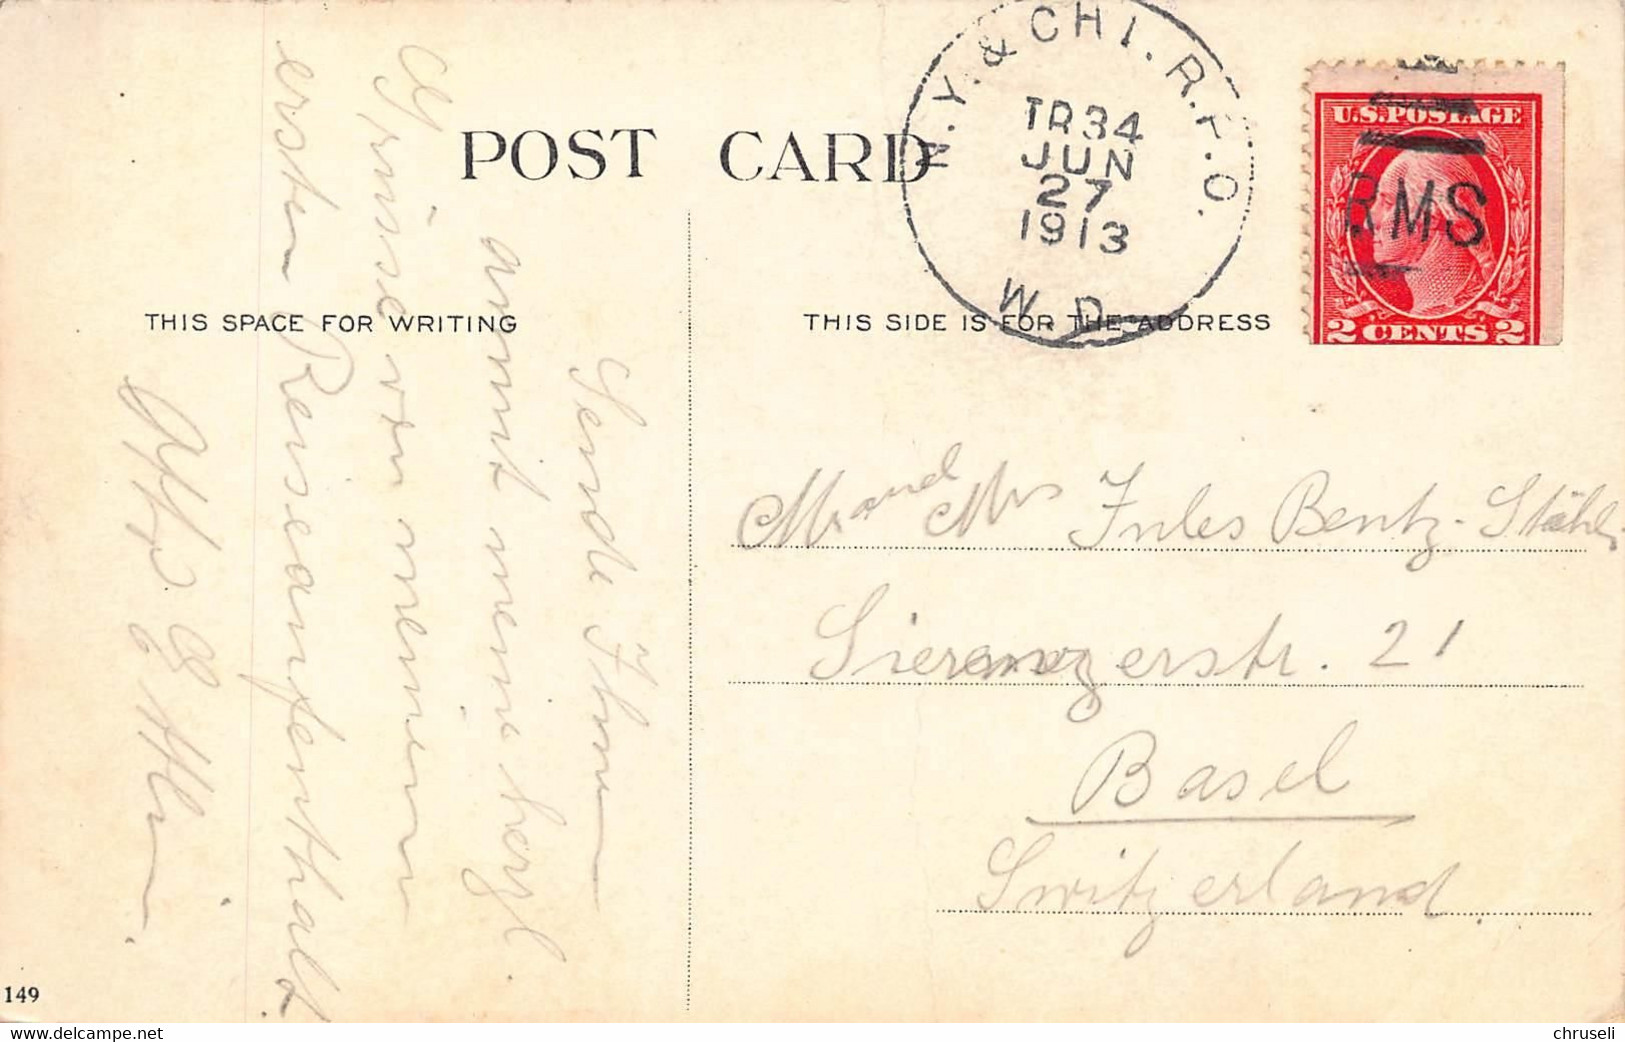 POST CARD
N.Y. & CHI. R.P.O.
TR 34
JUN
27
1913
W.D.
U.S. POSTAGE
RMS
2 CENTS 2
THIS SPACE FOR WRITING
THIS SIDE IS FOR THE ADDRESS
Sende Ihnen
anmit meine herzl.
Grüsse von meinem
ersten Reiseaufenthalt
Mr and Mrs Jules Bentz-Stähli
Sierenzerstr. 21
Basel
Switzerland.
149
chruseli